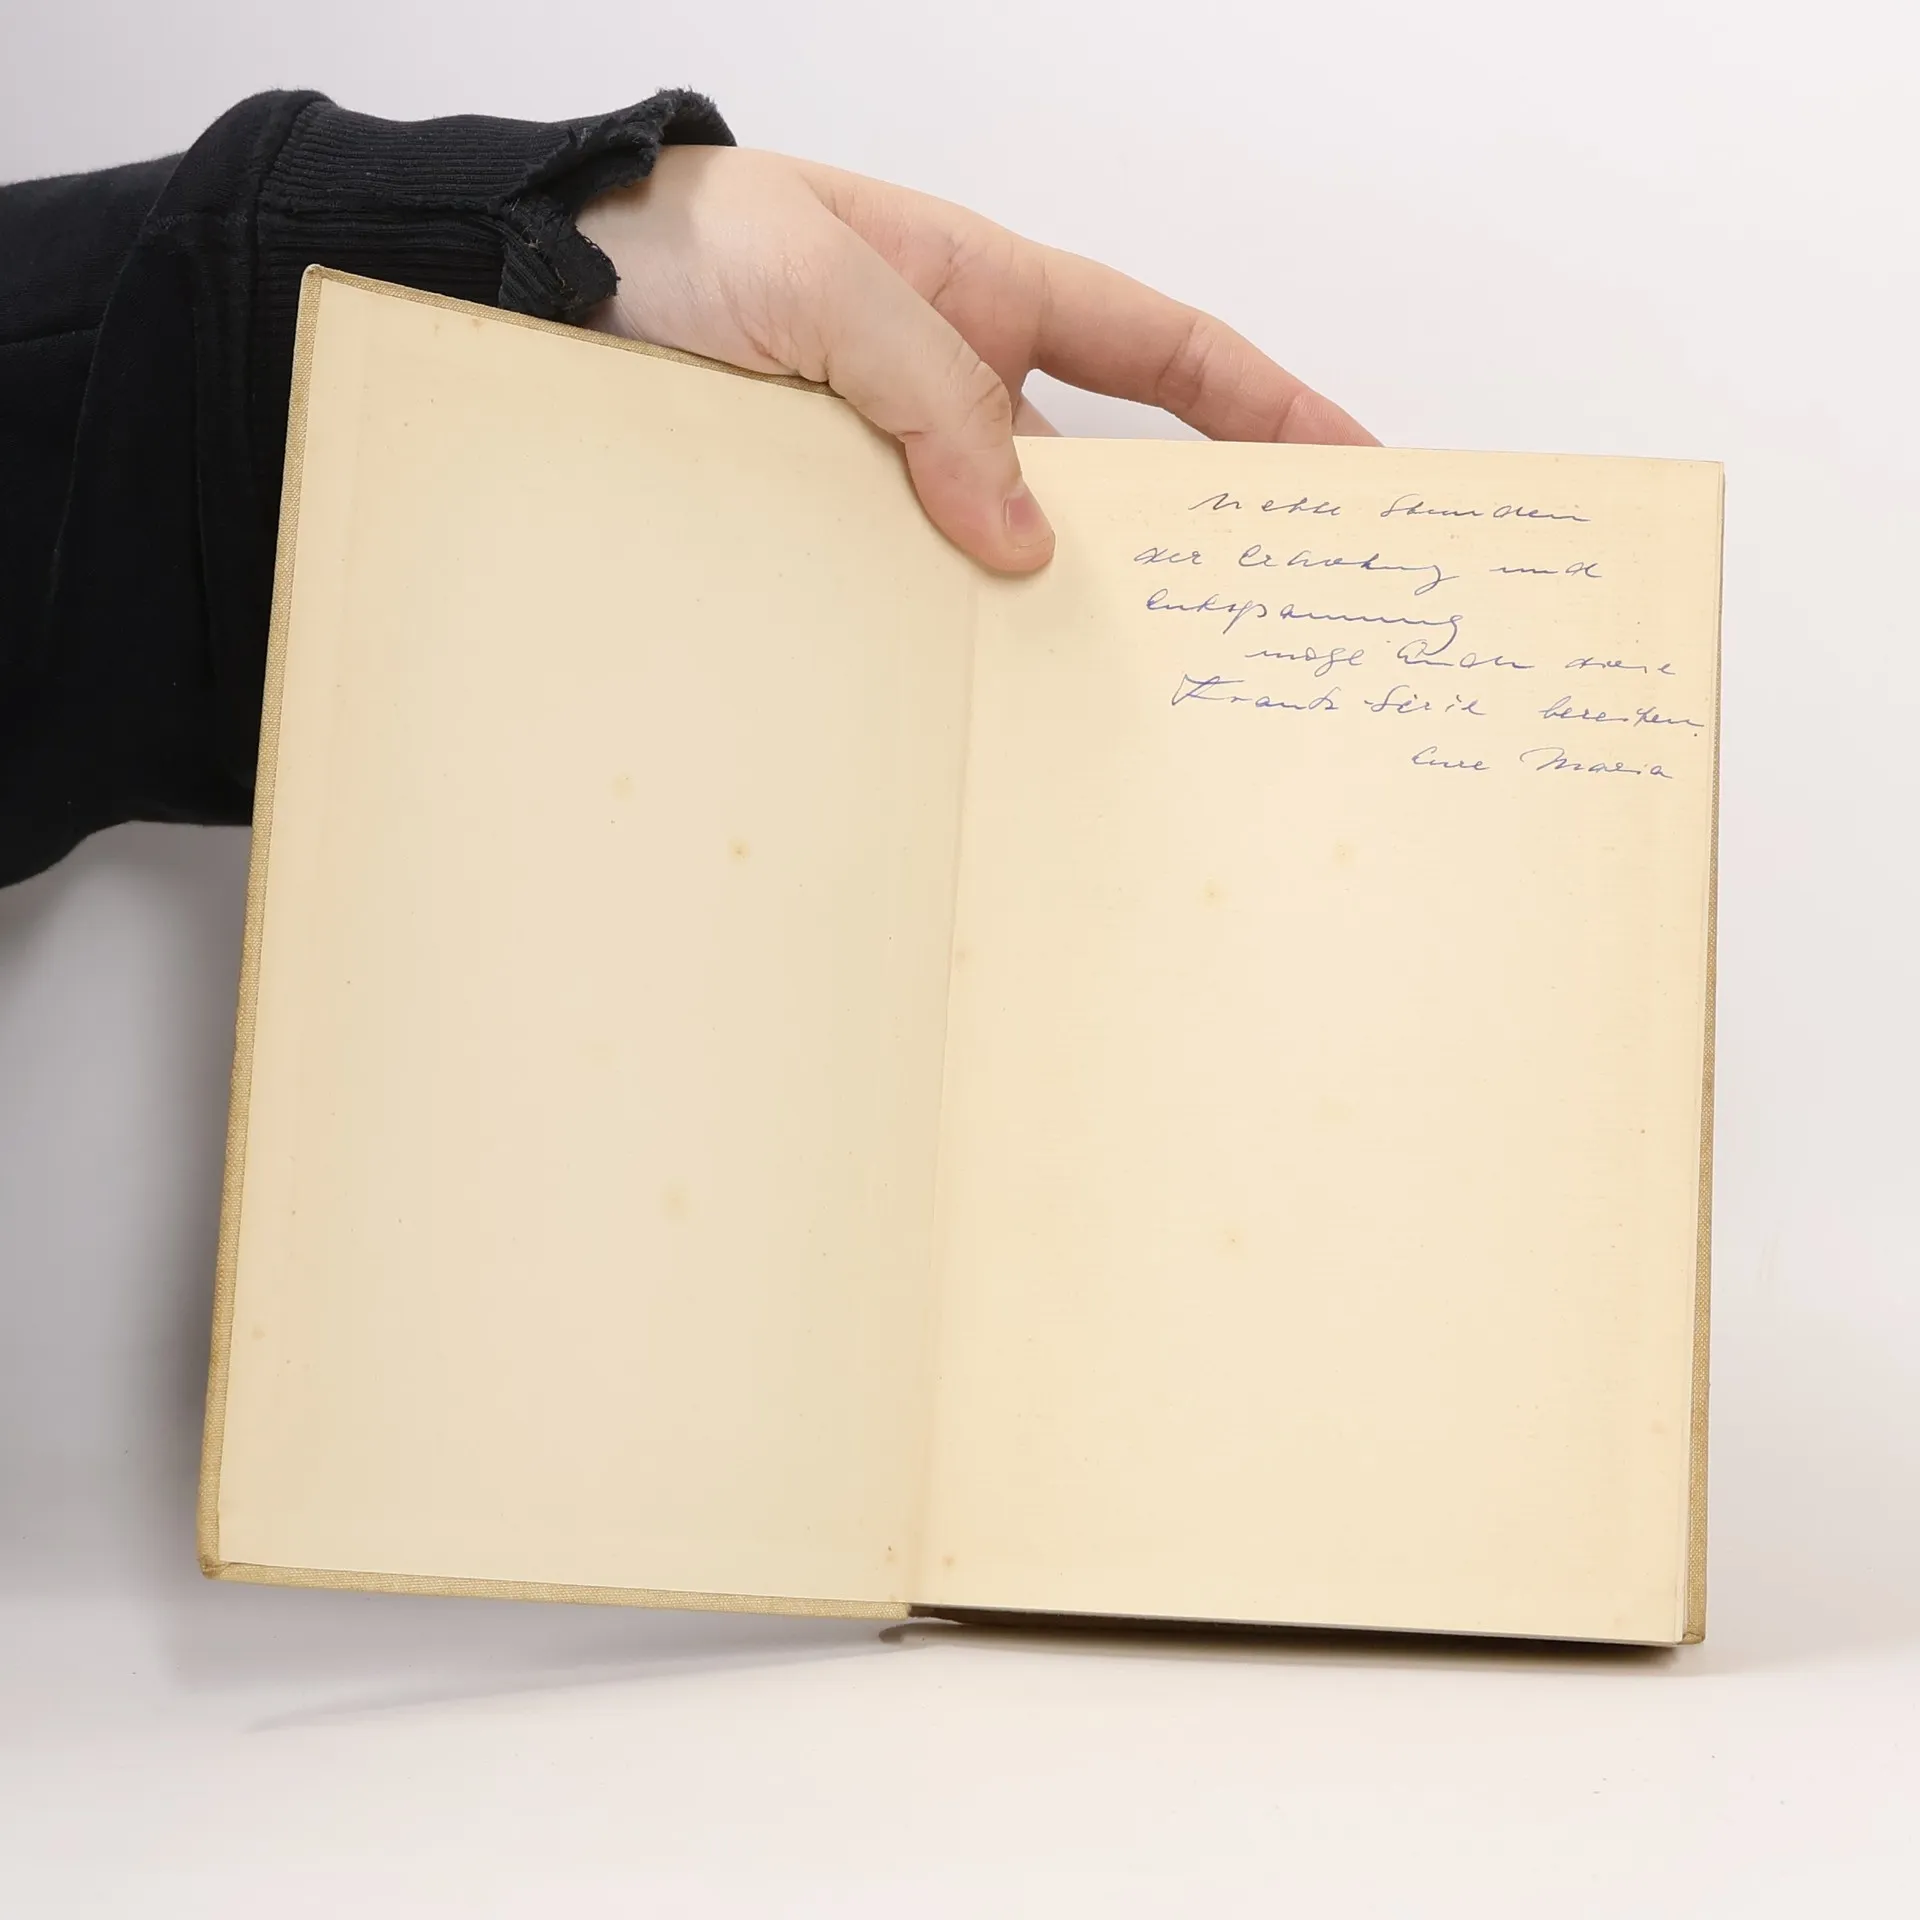 Nette Stunden
der Erholung und
Entspannung
möge Euch diese
Krantz-Serie bereiten.
Eure Maria